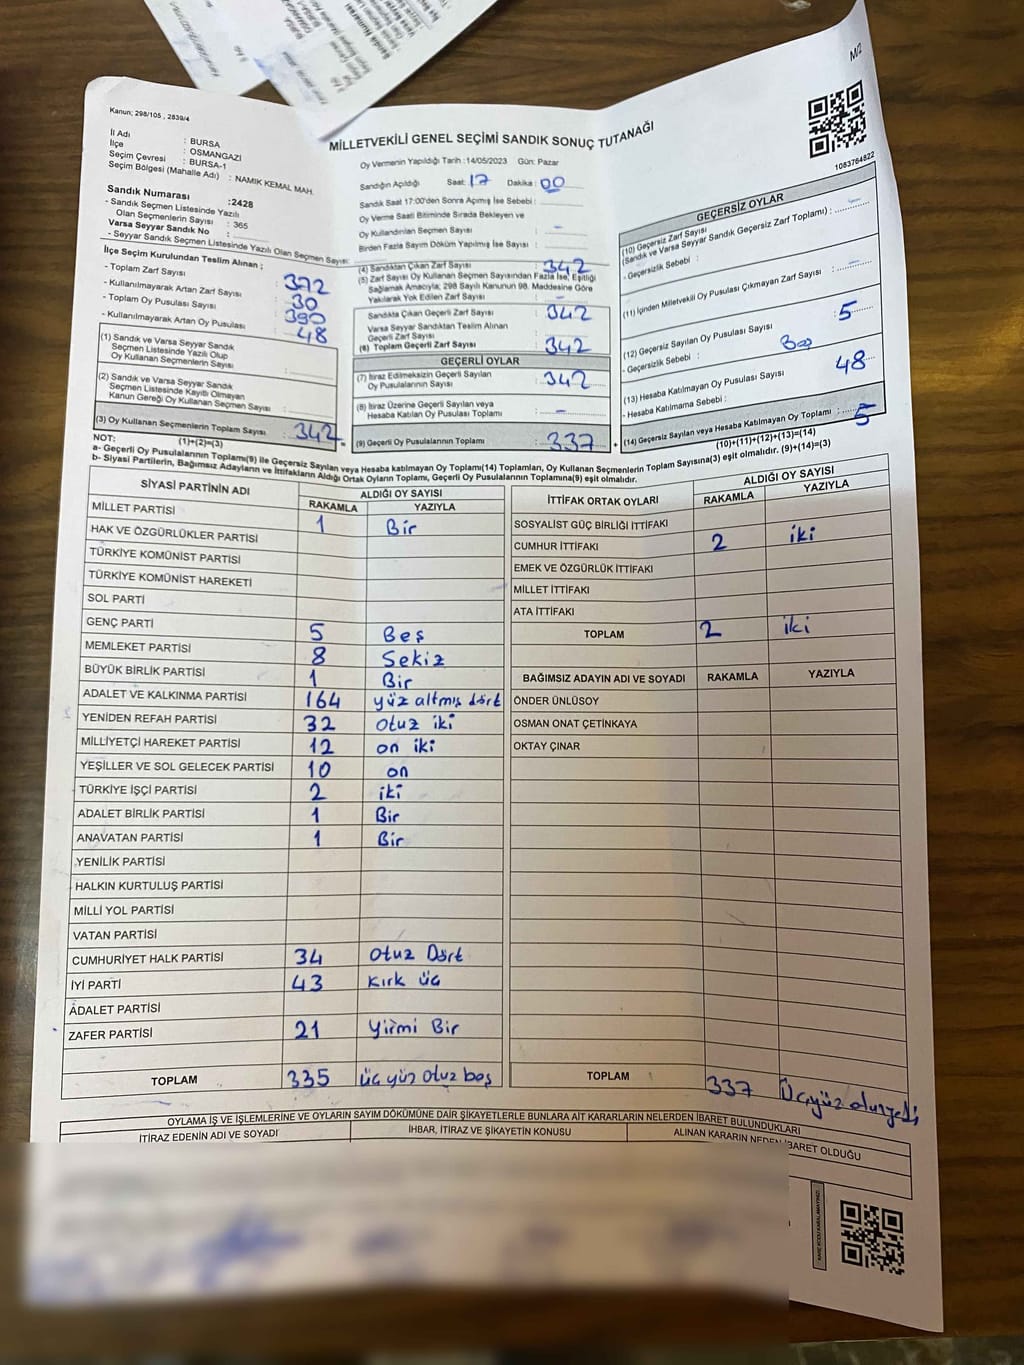 M/2
Kanun; 298/105 , 2839/4
MİLLETVEKİLİ GENEL SEÇİMİ SANDIK SONUÇ TUTANAĞI
1083764822
İl Adı : BURSA
İlçe : OSMANGAZİ
Seçim Çevresi : BURSA-1
Seçim Bölgesi (Mahalle Adı) : NAMIK KEMAL MAH.
Sandık Numarası :2428
- Sandık Seçmen Listesinde Yazılı
Olan Seçmenlerin Sayısı : 365
Varsa Seyyar Sandık No :
- Seyyar Sandık Seçmen Listesinde Yazılı Olan Seçmen Sayısı:
İlçe Seçim Kurulundan Teslim Alınan ;
- Toplam Zarf Sayısı : 372
- Kullanılmayarak Artan Zarf Sayısı : 30
- Toplam Oy Pusulası Sayısı : 390
- Kullanılmayarak Artan Oy Pusulası : 48
(1) Sandık ve Varsa Seyyar Sandık
Seçmen Listesinde Yazılı Olup
Oy Kullanan Seçmenlerin Sayısı :
(2) Sandık ve Varsa Seyyar Sandık
Seçmen Listesinde Kayıtlı Olmayan
Kanun Gereği Oy Kullanan Seçmen Sayısı :
(3) Oy Kullanan Seçmenlerin Toplam Sayısı : 342
(1)+(2)=(3)
Oy Vermenin Yapıldığı Tarih :14/05/2023 Gün: Pazar
Sandığın Açıldığı Saat: 17 Dakika : 00
Sandık Saat 17:00'den Sonra Açılmış İse Sebebi :
Oy Verme Saati Bitiminde Sırada Bekleyen ve
Oy Kullandırılan Seçmen Sayısı : -
Birden Fazla Sayım Döküm Yapılmış İse Sayısı :
(4) Sandıktan Çıkan Zarf Sayısı : 342
(5) Zarf Sayısı Oy Kullanan Seçmen Sayısından Fazla İse, Eşitliği
Sağlamak Amacıyla; 298 Sayılı Kanunun 98. Maddesine Göre
Yakılarak Yok Edilen Zarf Sayısı : -
Sandıkta Çıkan Geçerli Zarf Sayısı : 342
Varsa Seyyar Sandıktan Teslim Alınan
Geçerli Zarf Sayısı :
(6) Toplam Geçerli Zarf Sayısı : 342
GEÇERLİ OYLAR
(7) İtiraz Edilmeksizin Geçerli Sayılan
Oy Pusulalarının Sayısı : 342
(8) İtiraz Üzerine Geçerli Sayılan veya
Hesaba Katılan Oy Pusulası Toplamı : -
(9) Geçerli Oy Pusulalarının Toplamı : 337
GEÇERSİZ OYLAR
(10) Geçersiz Zarf Sayısı
(Sandık ve Varsa Seyyar Sandık Geçersiz Zarf Toplamı) : -
- Geçersizlik Sebebi :
(11) İçinden Milletvekili Oy Pusulası Çıkmayan Zarf Sayısı : -
(12) Geçersiz Sayılan Oy Pusulası Sayısı : 5
- Geçersizlik Sebebi : Boş
(13) Hesaba Katılmayan Oy Pusulası Sayısı : 48
- Hesaba Katılmama Sebebi :
(14) Geçersiz Sayılan veya Hesaba Katılmayan Oy Toplamı : 5
(10)+(11)+(12)+(13)=(14)
NOT:
a- Geçerli Oy Pusulalarının Toplamı(9) ile Geçersiz Sayılan veya Hesaba katılmayan Oy Toplam(14) Toplamları, Oy Kullanan Seçmenlerin Toplam Sayısına(3) eşit olmalıdır. (9)+(14)=(3)
b- Siyasi Partilerin, Bağımsız Adayların ve İttifakların Aldığı Ortak Oyların Toplamı, Geçerli Oy Pusulalarının Toplamına(9) eşit olmalıdır.
SİYASİ PARTİNİN ADI ALDIĞI OY SAYISI
RAKAMLA YAZIYLA
MİLLET PARTİSİ 1 Bir
HAK VE ÖZGÜRLÜKLER PARTİSİ
TÜRKİYE KOMÜNİST PARTİSİ
TÜRKİYE KOMÜNİST HAREKETİ
SOL PARTİ
GENÇ PARTİ 5 Beş
MEMLEKET PARTİSİ 8 Sekiz
BÜYÜK BİRLİK PARTİSİ 1 Bir
ADALET VE KALKINMA PARTİSİ 164 yüz altmış dört
YENİDEN REFAH PARTİSİ 32 otuz iki
MİLLİYETÇİ HAREKET PARTİSİ 12 on iki
YEŞİLLER VE SOL GELECEK PARTİSİ 10 on
TÜRKİYE İŞÇİ PARTİSİ 2 iki
ADALET BİRLİK PARTİSİ 1 Bir
ANAVATAN PARTİSİ 1 Bir
YENİLİK PARTİSİ
HALKIN KURTULUŞ PARTİSİ
MİLLİ YOL PARTİSİ
VATAN PARTİSİ
CUMHURİYET HALK PARTİSİ 34 Otuz Dört
İYİ PARTİ 43 Kırk üç
ADALET PARTİSİ
ZAFER PARTİSİ 21 Yirmi Bir
TOPLAM 335 üç yüz otuz beş
İTTİFAK ORTAK OYLARI ALDIĞI OY SAYISI
RAKAMLA YAZIYLA
SOSYALİST GÜÇ BİRLİĞİ İTTİFAKI
CUMHUR İTTİFAKI 2 iki
EMEK VE ÖZGÜRLÜK İTTİFAKI
MİLLET İTTİFAKI
ATA İTTİFAKI
TOPLAM 2 iki
BAĞIMSIZ ADAYIN ADI VE SOYADI RAKAMLA YAZIYLA
ÖNDER ÜNLÜSOY
OSMAN ONAT ÇETİNKAYA
OKTAY ÇINAR
TOPLAM 337 Üçyüz otuzyedi
OYLAMA İŞ VE İŞLEMLERİNE VE OYLARIN SAYIM DÖKÜMÜNE DAİR ŞİKAYETLERLE BUNLARA AİT KARARLARIN NELERDEN İBARET BULUNDUKLARI
İTİRAZ EDENİN ADI VE SOYADI İHBAR, İTİRAZ VE ŞİKAYETİN KONUSU ALINAN KARARIN NEDEN İBARET OLDUĞU
KARE KODU KARALAMAYINIZ!